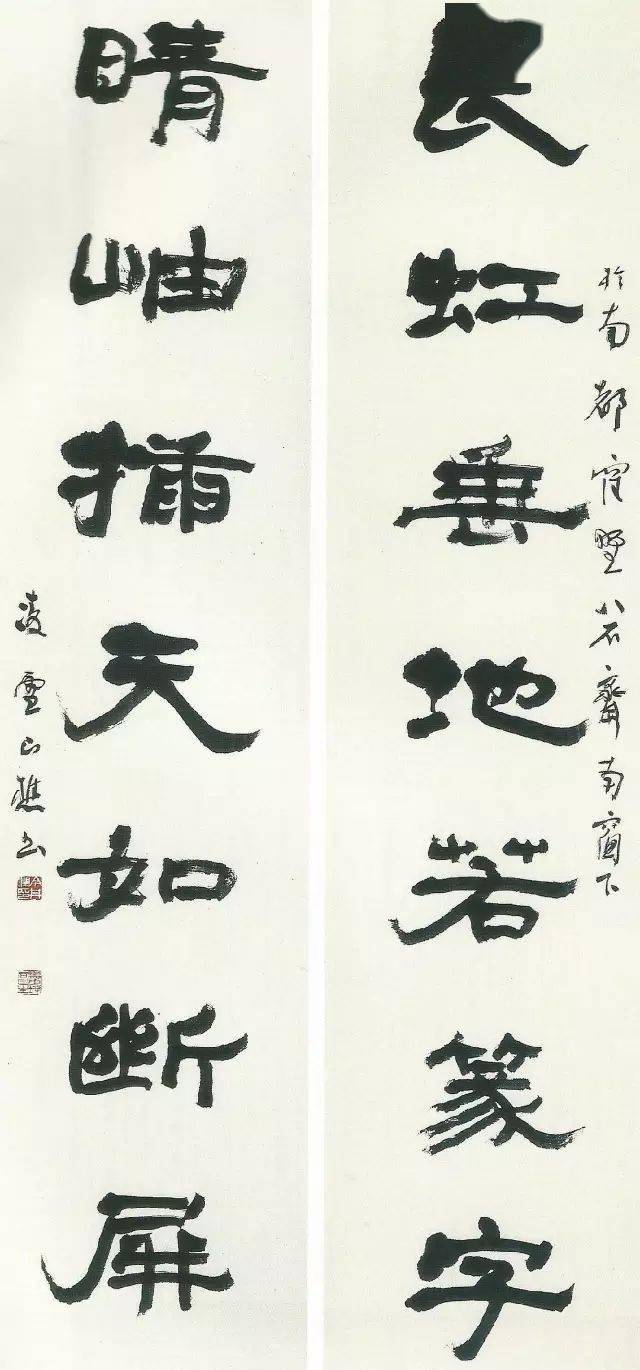 於南都八石齋南窗下
長虹垂地若篆字
晴岫插天如斷屏
山樵書